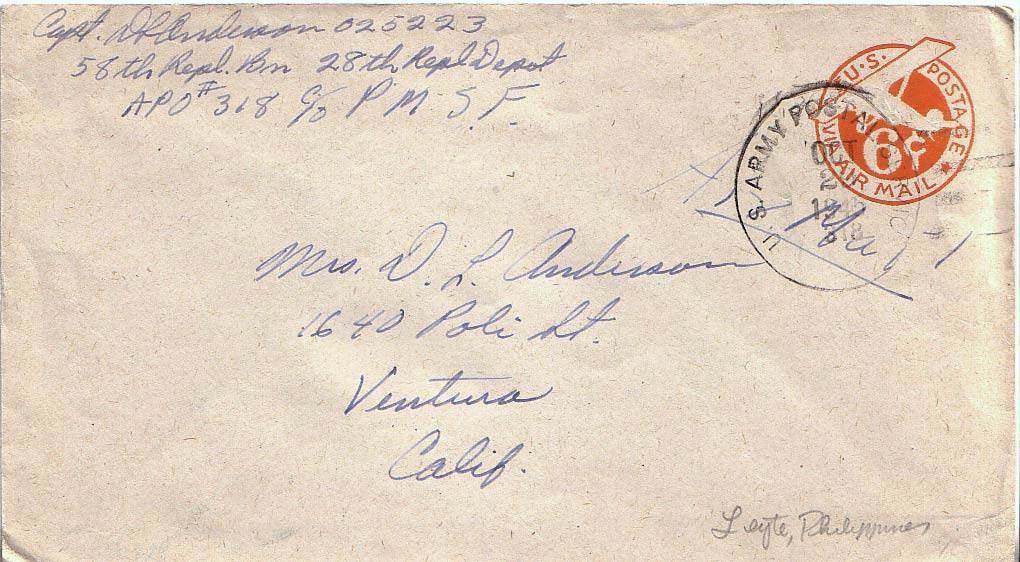 Capt. D L Anderson 025223
58th Repl. Bn 28th Repl Depot
APO # 318 c/o P. M. S. F.
U.S. POSTAGE
6¢
VIA AIR MAIL
U.S. ARMY POSTAL
OCT
2
Mrs. D. L. Anderson
1640 Poli St.
Ventura
Calif.
Leyte, Philippines